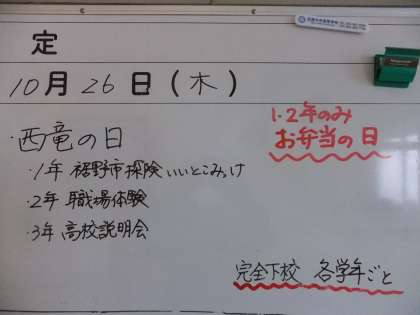 定
10月 26 日 (木)
・西竜の日
・1年 裾野市探険 いいとこみっけ
・2年 職場体験
・3年 高校説明会
1・2年のみ
お弁当の日
完全下校 各学年ごと